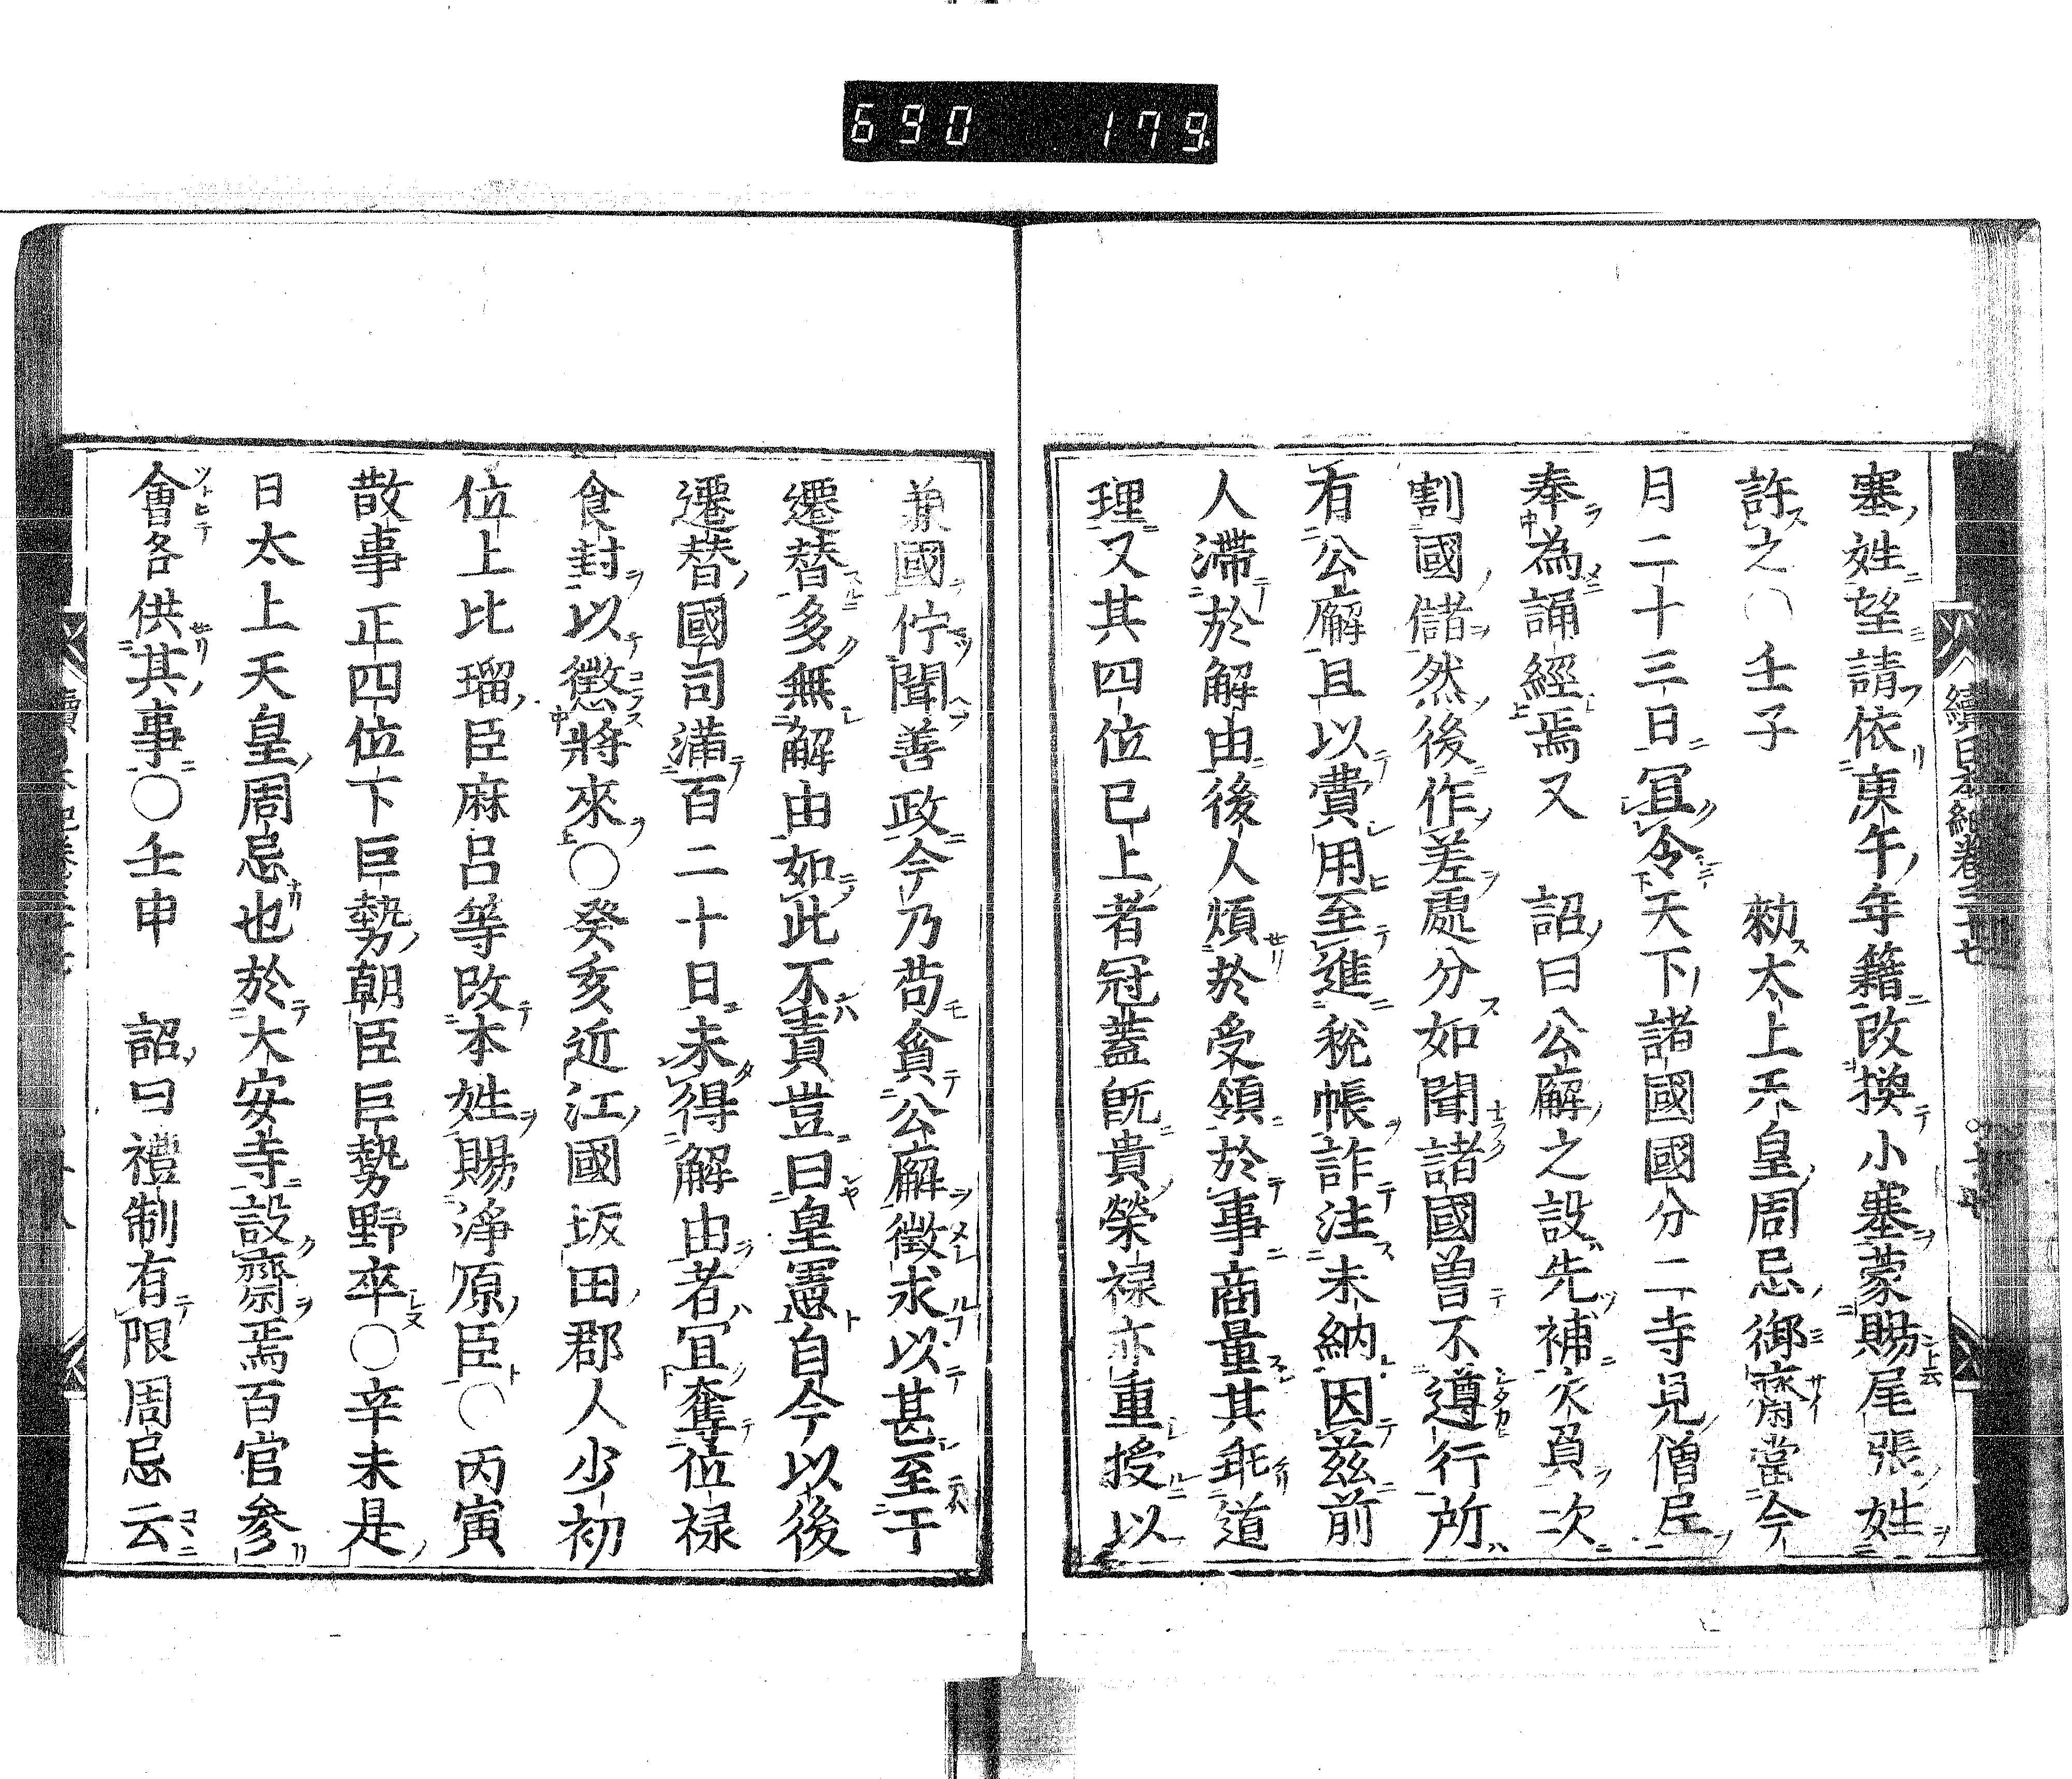 690 179
續日本紀卷三十七
塞姓望請依庚午年籍改換小塞蒙賜尾張姓
許之○壬子 勅太上天皇周忌御齋當今
月二十三日宜令天下諸國國分二寺見僧尼
奉為誦經焉又 詔曰公廨之設先補欠負次
割國儲然後作差處分如聞諸國曾不遵行所
有公廨且以費用至進稅帳詐注未納因茲前
人滯於解由後人煩於受領於事商量其乖道
理又其四位已上者冠蓋旣貴榮祿亦重授以
兼國佇聞善政今乃苟貪公廨徵求以甚至于
遷替多無解由如此不責豈曰皇憲自今以後
遷替國司滿百二十日未得解由者宜奪位禄
食封以懲將來○癸亥近江國坂田郡人少初
位上比瑠臣麻呂等改本姓賜淨原臣○丙寅
散事正四位下巨勢朝臣巨勢野卒○辛未是
日太上天皇周忌也於大安寺設齋焉百官參
會各供其事○壬申 詔曰禮制有限周忌云